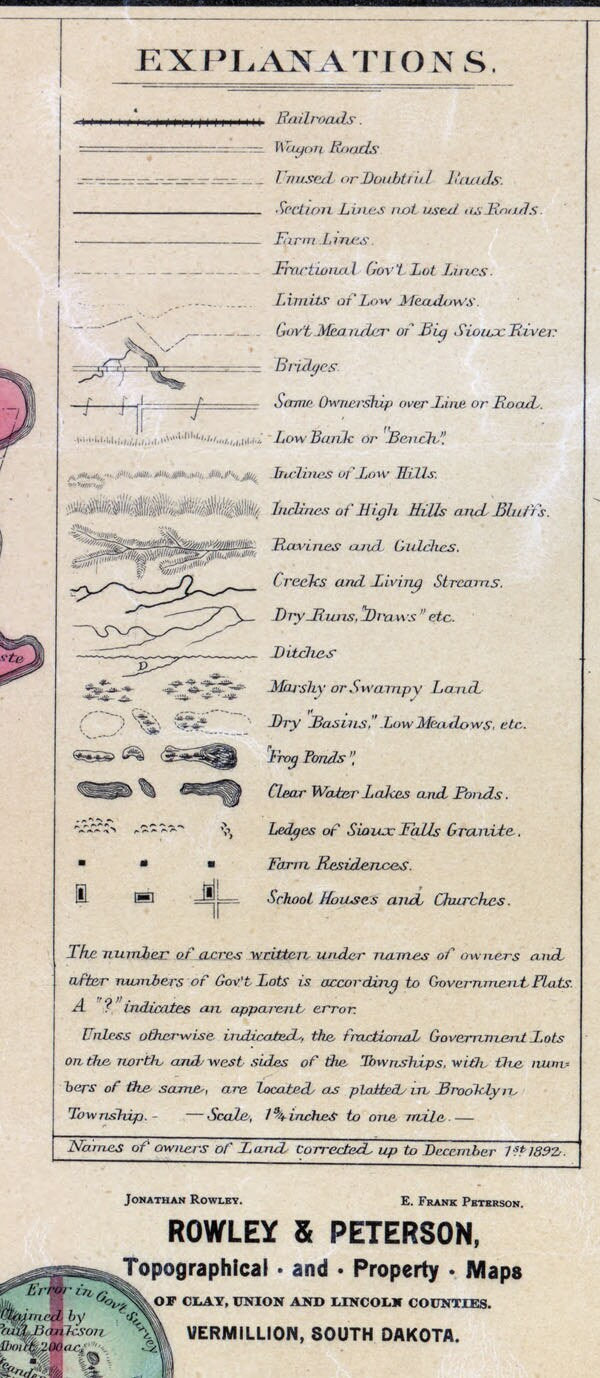 EXPLANATIONS.
Railroads.
Wagon Roads
Unused or Doubtful Roads.
Section Lines not used as Roads.
Farm Lines.
Fractional Gov't Lot Lines.
Limits of Low Meadows.
Gov't Meander of Big Sioux River.
Bridges.
Same Ownership over Line or Road.
Low Bank or "Bench".
Inclines of Low Hills.
Inclines of High Hills and Bluffs.
Ravines and Gulches.
Creeks and Living Streams.
Dry Runs, "Draws" etc.
D
Ditches
Marshy or Swampy Land
Dry "Basins," Low Meadows, etc.
"Frog Ponds",
Clear Water Lakes and Ponds.
Ledges of Sioux Falls Granite.
Farm Residences.
School Houses and Churches.
The number of acres written under names of owners and
after numbers of Gov't Lots is according to Government Plats.
A "?" indicates an apparent error.
Unless otherwise indicated, the fractional Government Lots
on the north and west sides of the Townships, with the num=
bers of the same, are located as platted in Brooklyn
Township. - — Scale, 1¾ inches to one mile. —
Names of owners of Land corrected up to December 1st 1892.
JONATHAN ROWLEY. E. FRANK PETERSON.
ROWLEY & PETERSON,
Topographical · and · Property · Maps
OF CLAY, UNION AND LINCOLN COUNTIES.
VERMILLION, SOUTH DAKOTA.
ste
Error in Gov't Survey
Claimed by
Paul Bankson
About 200 ac.